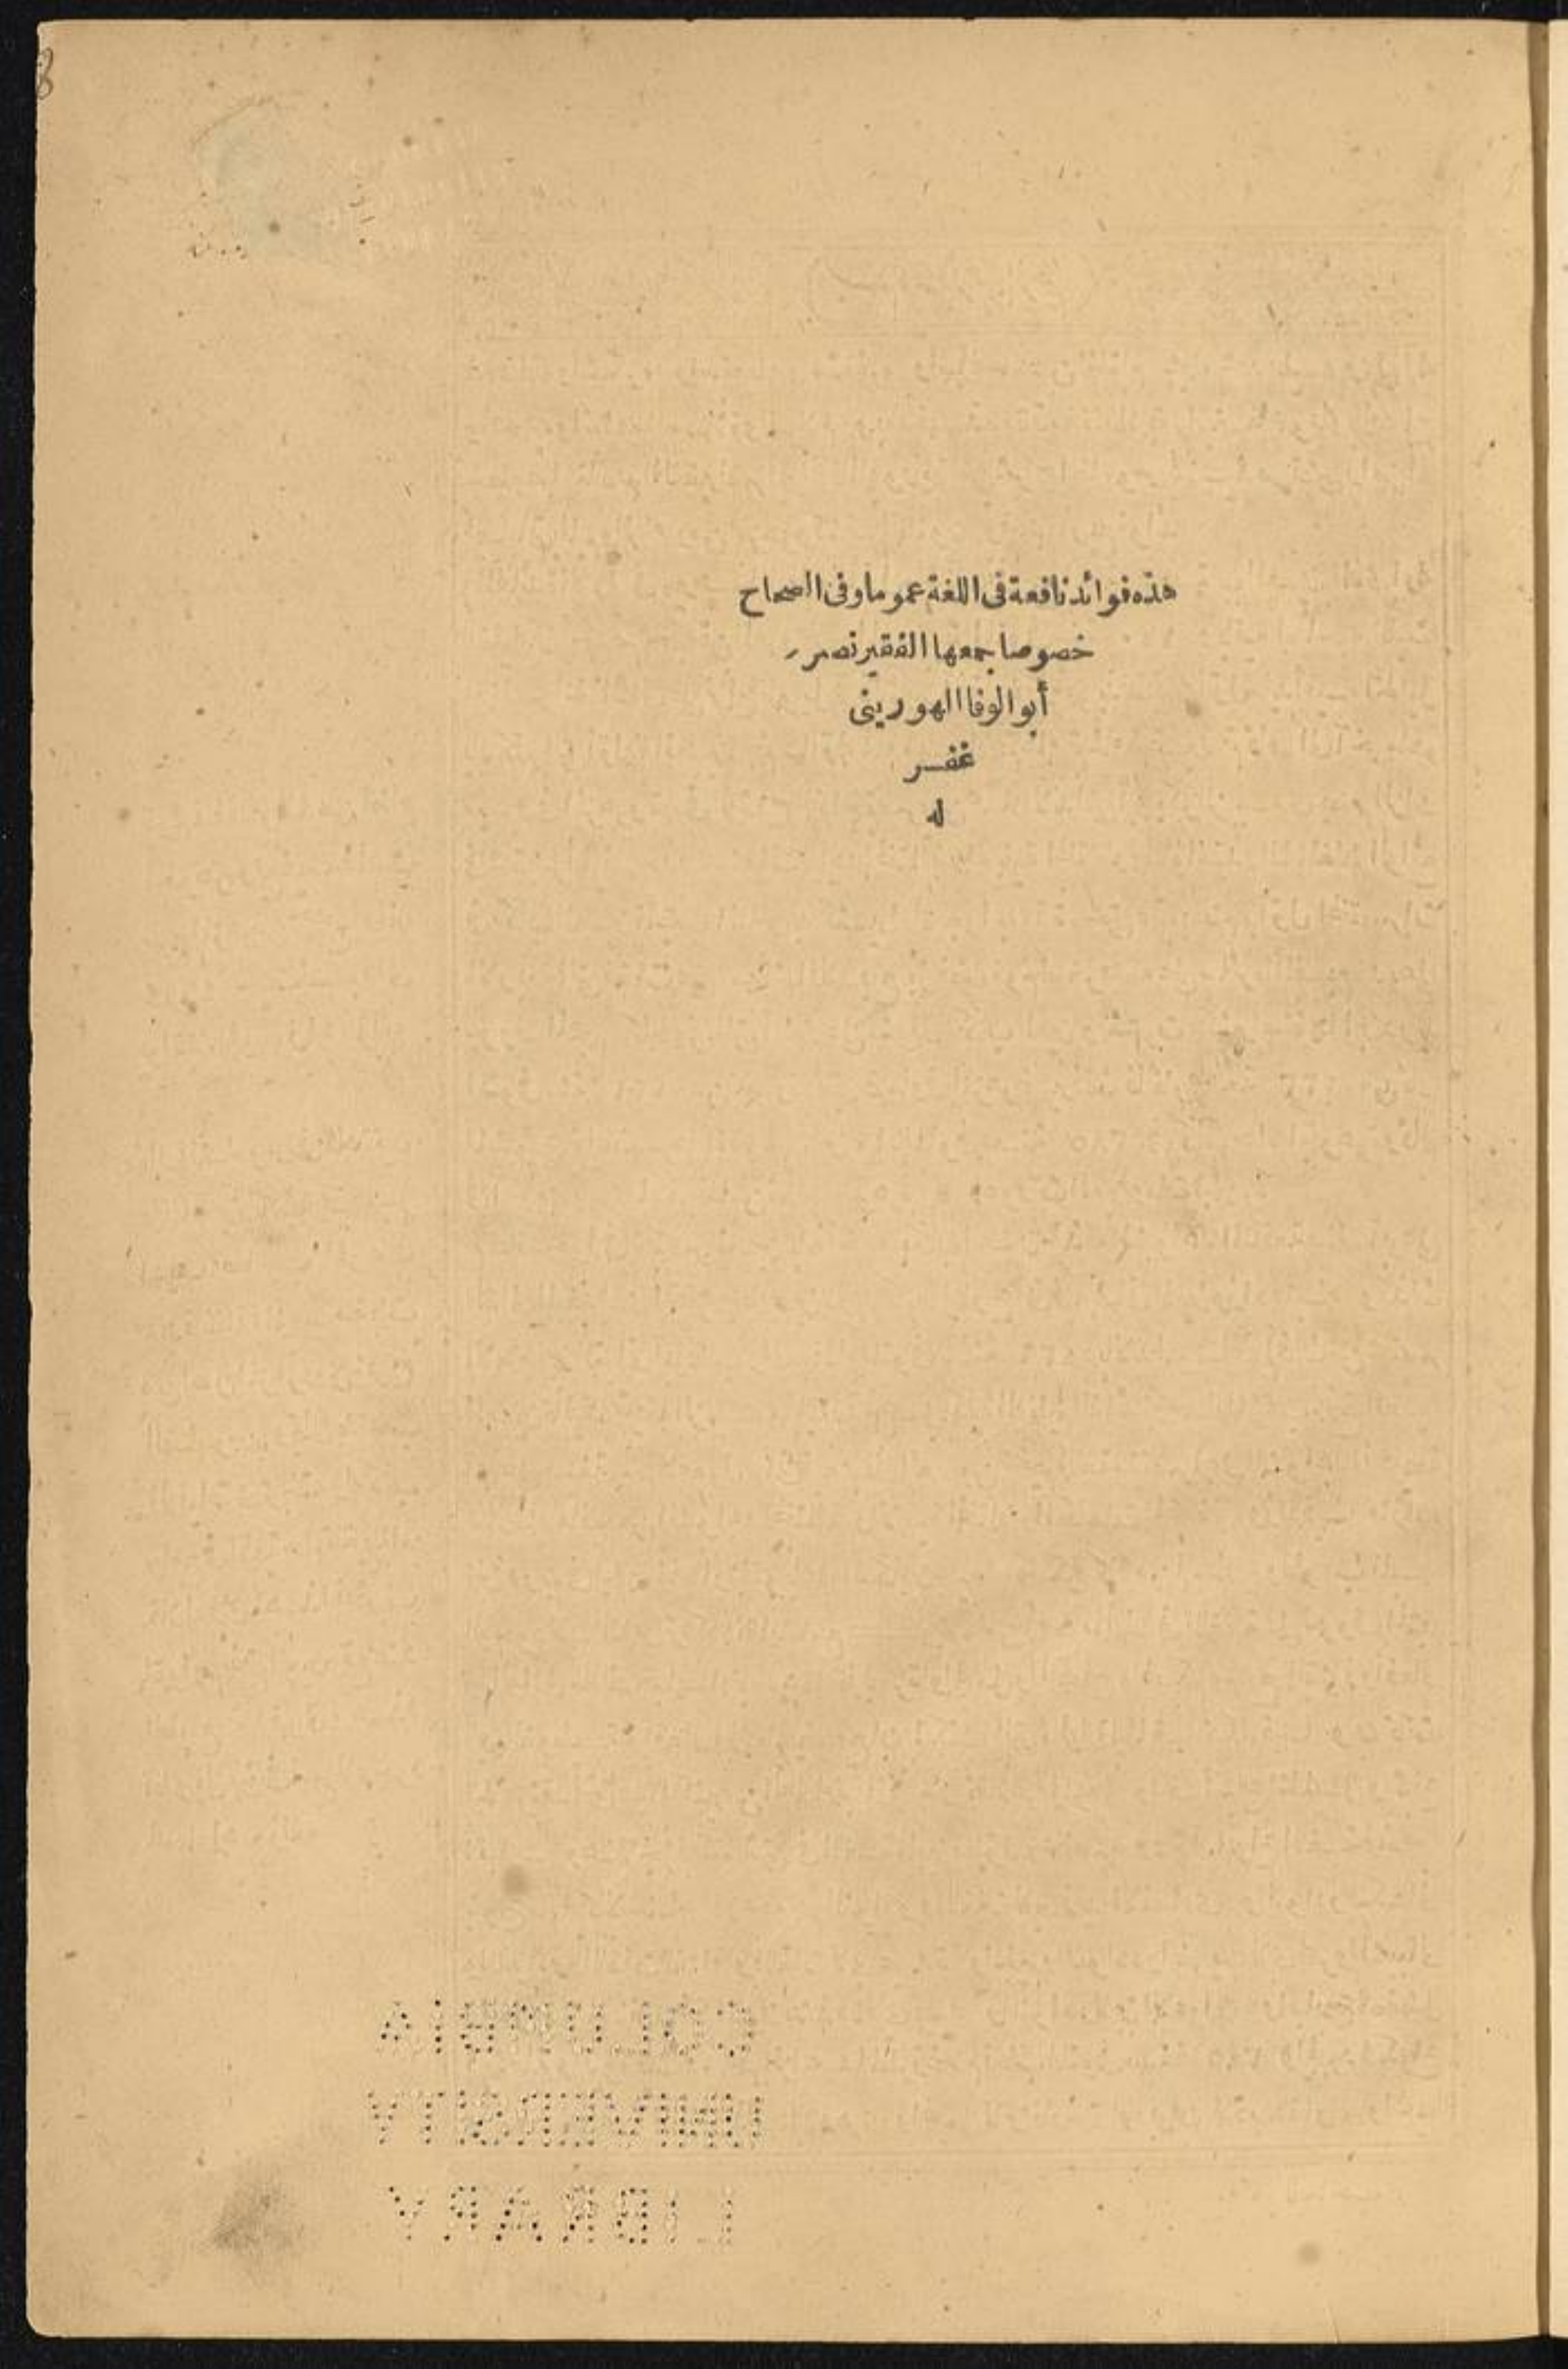 هذه فوائد نافعة فى اللغة عموما وفى الصحاح
خصوصا جمعها الفقير نصر
أبو الوفا الهورينى
غفر
له
COLUMBIA
UNIVERSITY
LIBRARY